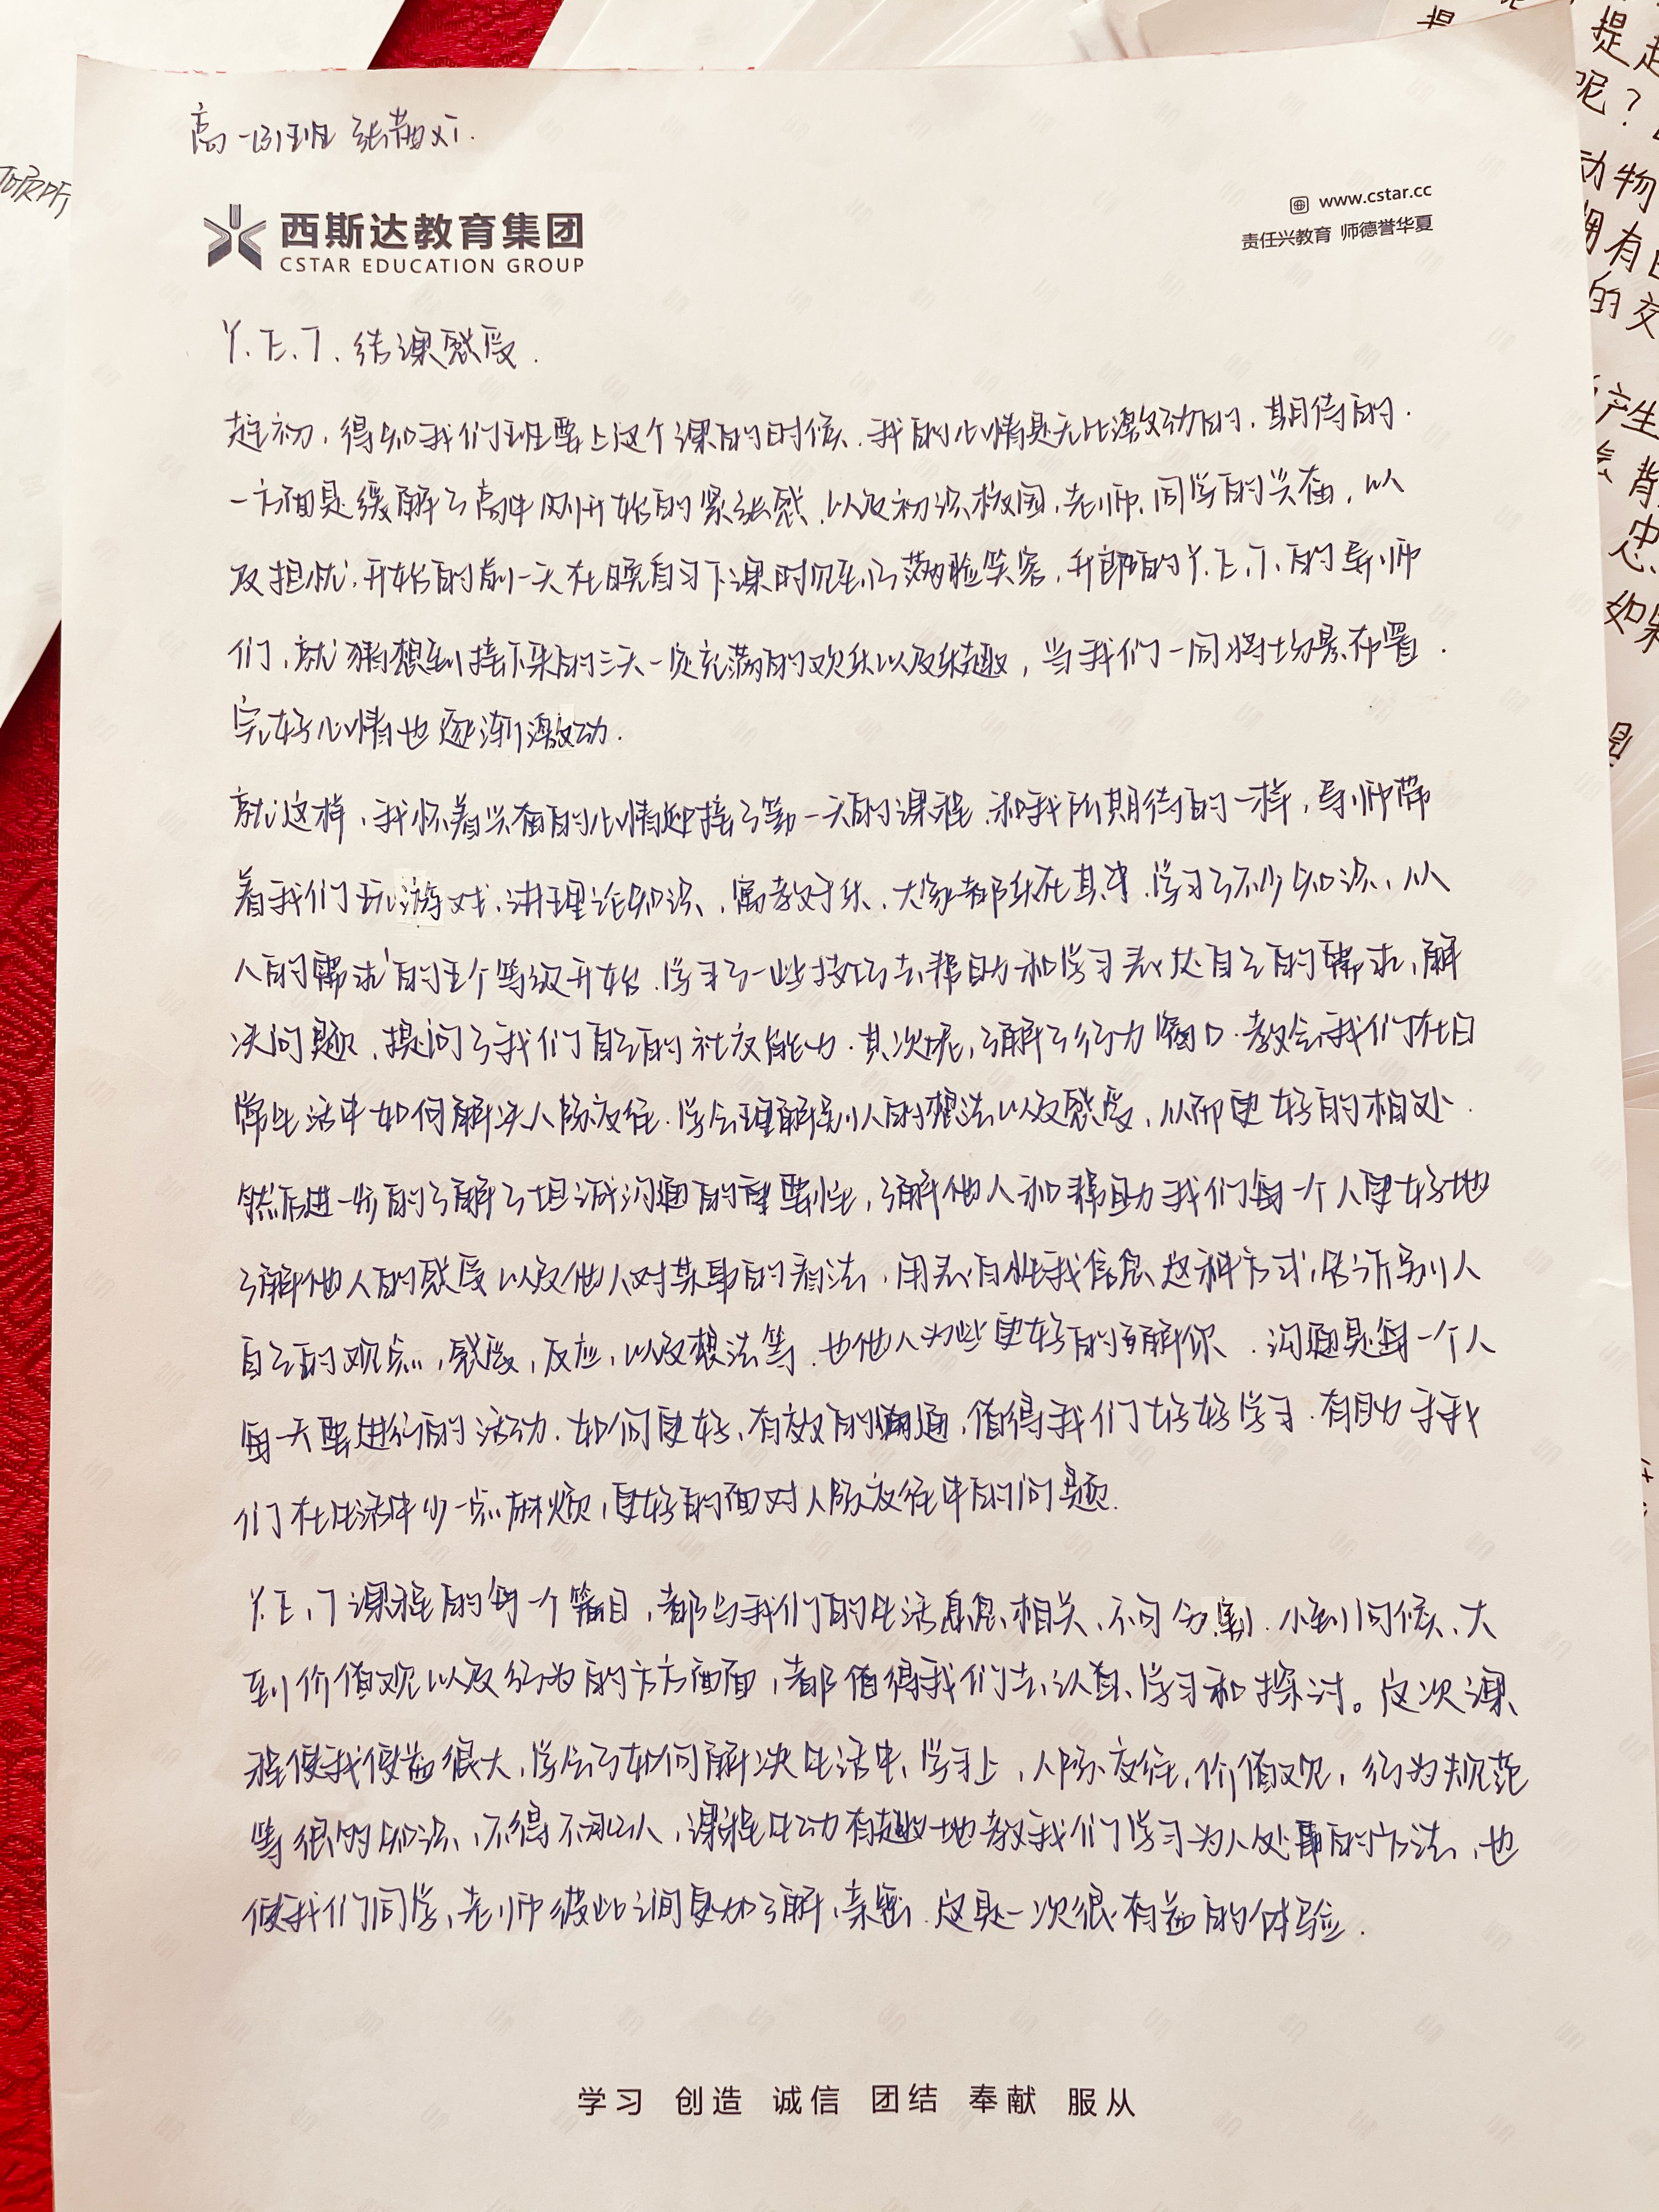 高一 班 张茜
西斯达教育集团
CSTAR EDUCATION GROUP
www.cstar.cc
责任兴教育 师德誉华夏
Y.E.T. 结课感受.
起初,得知我们班要上这个课的时候,我的心情是无比激动的,期待的.
一方面是缓解了高中刚开始的紧张感,以及初识校园,老师,同学的兴奋,以
及担忧,开始的前一天在晚自习下课时见到了满脸笑容,开朗的Y.E.T.的导师
们,就猜想到接下来的三天一定充满的欢乐以及乐趣,当我们一同将场景布置.
完好心情也逐渐激动.
就这样,我怀着兴奋的心情迎接了第一天的课程.和我所期待的一样,导师带
着我们玩游戏,讲理论知识,寓教于乐,大家都乐在其中.学习了不少知识,从
人的需求的五个等级开始.学习了一些技巧去帮助和学习表达自己的需求,解
决问题,提问了我们自己的社交能力.其次呢,了解了行为窗口.教会我们在日
常生活中如何解决人际交往.学会理解别人的想法以及感受,从而更好的相处.
然后进一步的了解了坦诚沟通的重要性,了解他人和帮助我们每一个人更好地
了解他人的感受以及他人对某事的看法,用表白性我信息这种方式,告诉别人
自己的观点,感受,反应,以及想法等.也他人为此更好的了解你.沟通是每一个人
每一天要进行的活动.如何更好,有效的沟通,值得我们好好学习.有助于我
们在生活中少一点麻烦,更好的面对人际交往中的问题.
Y.E.T课程的每一个篇目,都与我们的生活息息相关,不可分割.小到问候,大
到价值观以及行为的方方面面,都值得我们去认真,学习和探讨。这次课
程使我受益很大,学会了如何解决生活中,学习上,人际交往,价值观,行为规范
等很多知识,不得不承认,课程生动有趣地教我们学习为人处事的方法,也
使我们同学,老师彼此之间更加了解,亲密.这是一次很有益的体验.
学习 创造 诚信 团结 奉献 服从
提起
呢?
动物
拥有
的交
产生
忠
如果
是